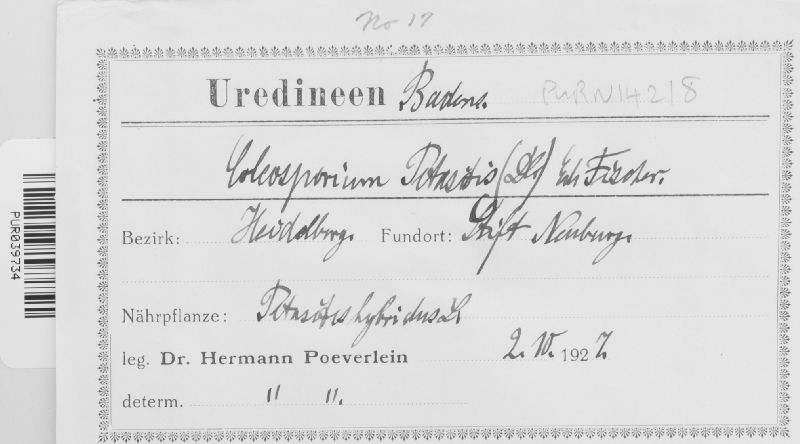 No 17
Uredineen Badens. PUR N14218
Coleosporium Petasitis (DC.) Ed. Fischer.
Bezirk: Heidelberg. Fundort: Stift Neuburg.
Nährpflanze: Petasites hybridus L.
leg. Dr. Hermann Poeverlein 2. IV. 1927.
determ. " ".
PUR039734